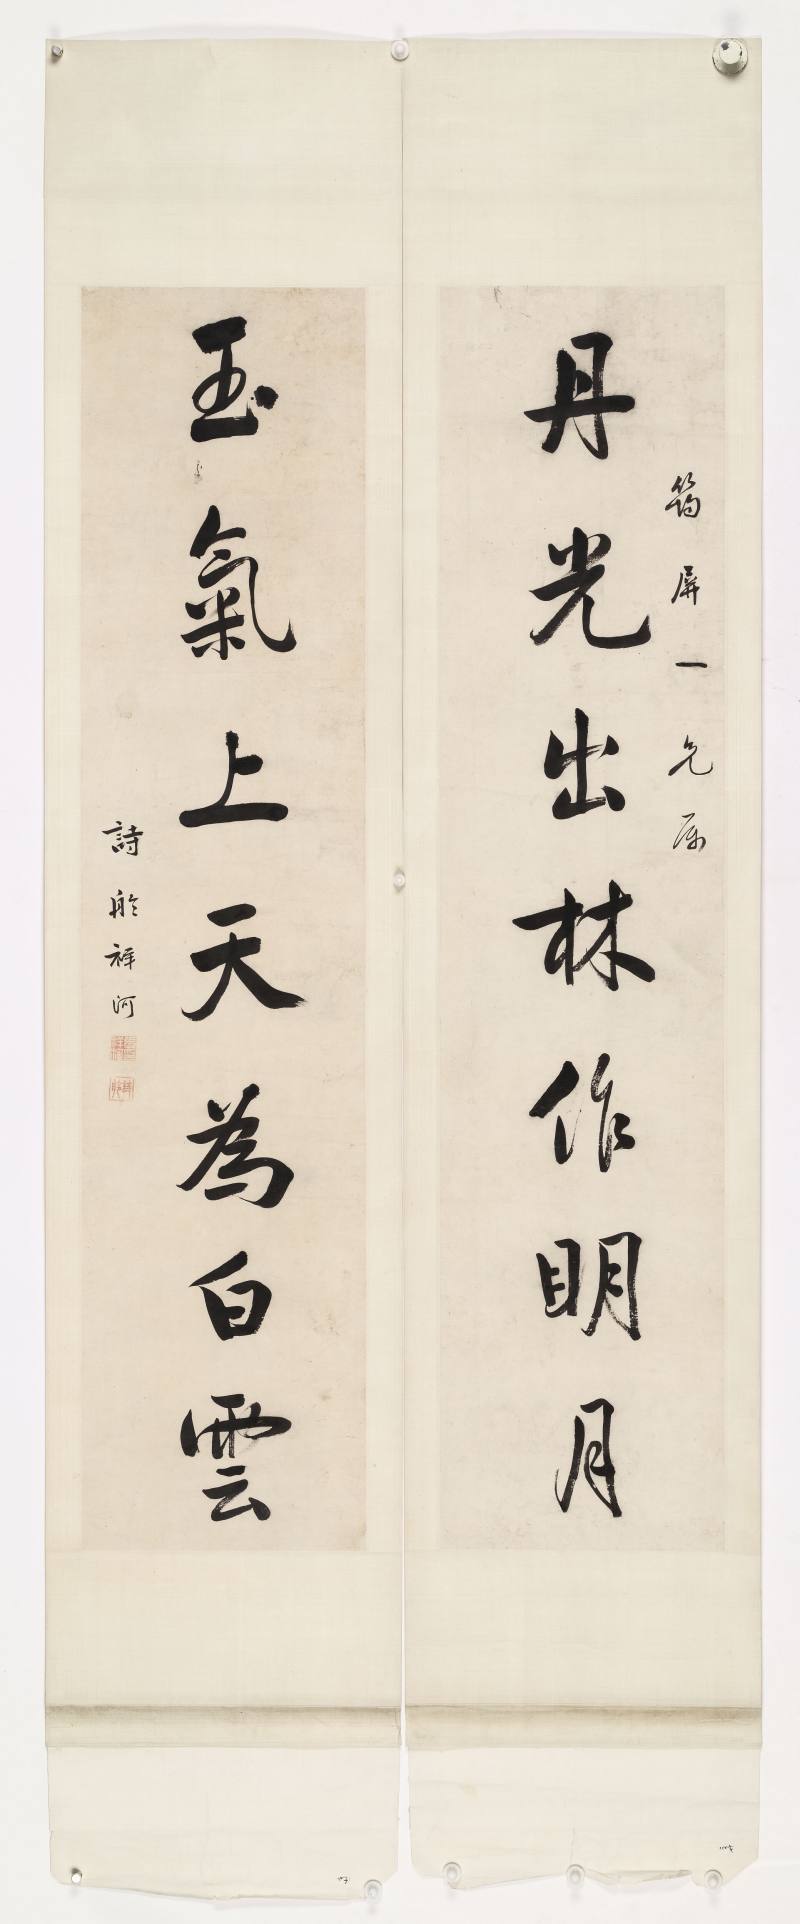 筠屏一兄属
丹光出林作明月
玉氣上天為白雲
詩舲祥河